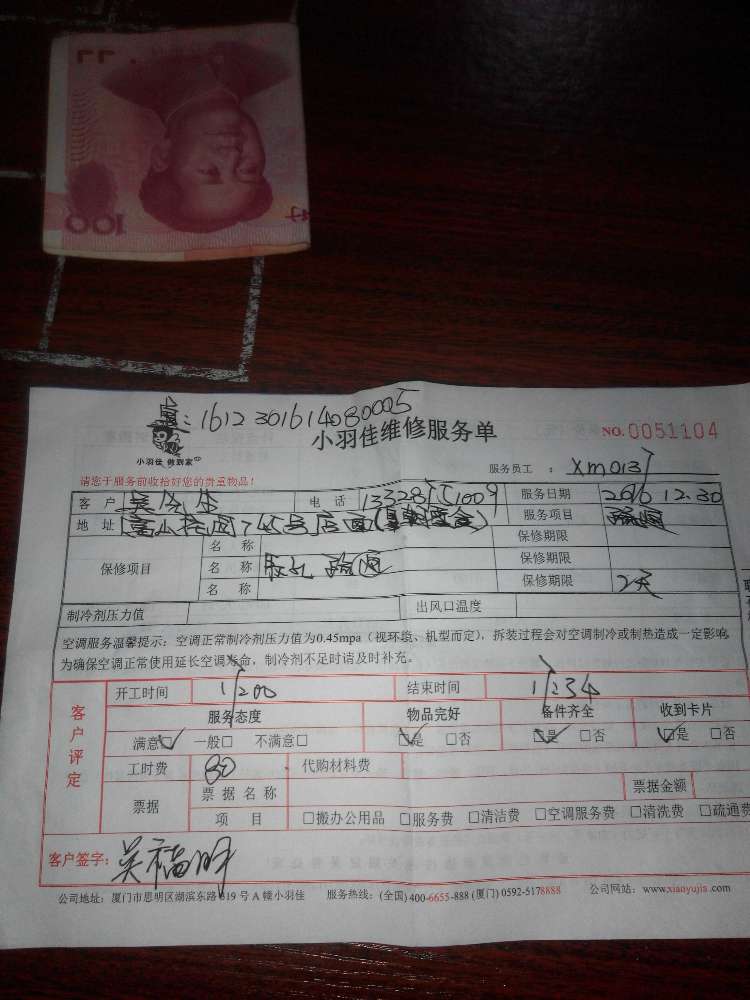 100
1612301614080005
小羽佳维修服务单
NO.0051104
小羽佳 做到家
服务员工 : Xm013
请您于服务前收拾好您的贵重物品!
客 户 吴先生 电 话 服务日期 2016 12.30
地 址 服务项目
保修项目 名 称 保修期限
名 称 保修期限
名 称 保修期限 2天
制冷剂压力值 出风口温度
空调服务温馨提示:空调正常制冷剂压力值为0.45mpa(视环境、机型而定),拆装过程会对空调制冷或制热造成一定影响,
为确保空调正常使用延长空调寿命,制冷剂不足时请及时补充。
客户评定
开工时间 结束时间
服务态度 物品完好 备件齐全 收到卡片
满意☑ 一般□ 不满意□ ☑是 □否 ☑是 □否 ☑是 □否
工时费 80 代购材料费
票据 票据名称 票据金额
项 目 □搬办公用品 □服务费 □清洁费 □空调服务费 □清洗费 □疏通费
客户签字:
公司地址:厦门市思明区湖滨东路319号A幢小羽佳 服务热线:(全国)400-6655-888 (厦门)0592-5178888 公司网站:www.xiaoyujia.com